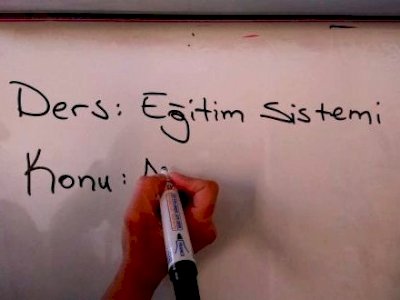 Ders: Eğitim Sistemi
Konu: